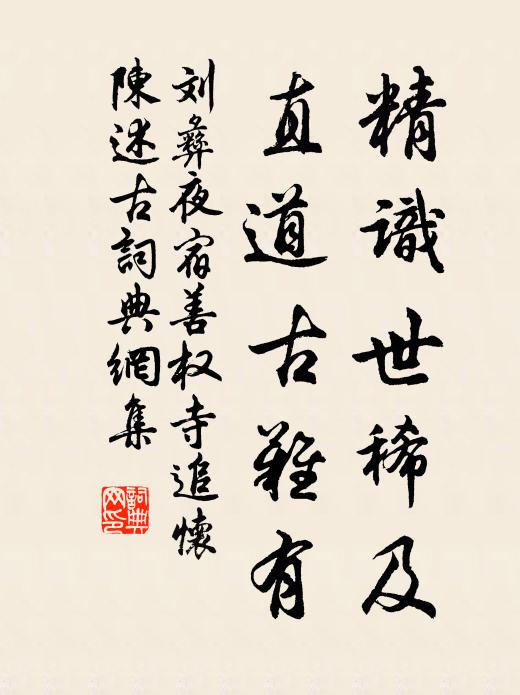 精識世稀及
直道古難有
刘彝夜宿善权寺追懷
陳述古詞典網集
詞典网印